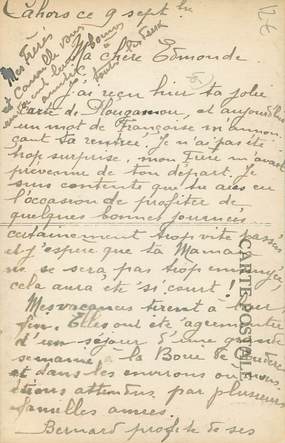 Cahors ce 9 septbre
Mes Frères
et Camille vous
envoient leurs bonnes
amitiés à tous deux
Ma chère Edmonde
J'ai reçu hier ta jolie
carte de Plougasnou, et aujourd'hui
un mot de Françoise m'annon
çant ta rentrée. Je n'ai pas été
trop surprise, mon Frère m'avait
prévenue de ton départ. Je
suis contente que tu aies eu
l'occasion de profiter de
quelques bonnes journées
certainement trop vite passées
et j'espère que ta Maman
ne se sera pas trop ennuyée,
cela aura été si court !
Mes vacances tirent à leur
fin. Elles ont été agrémentées
d'un séjour d'une grande
semaine à la Boue
et dans les environs où nous
étions attendus par plusieurs
familles amies.
Bernard profite de ses
CARTE POSTALE